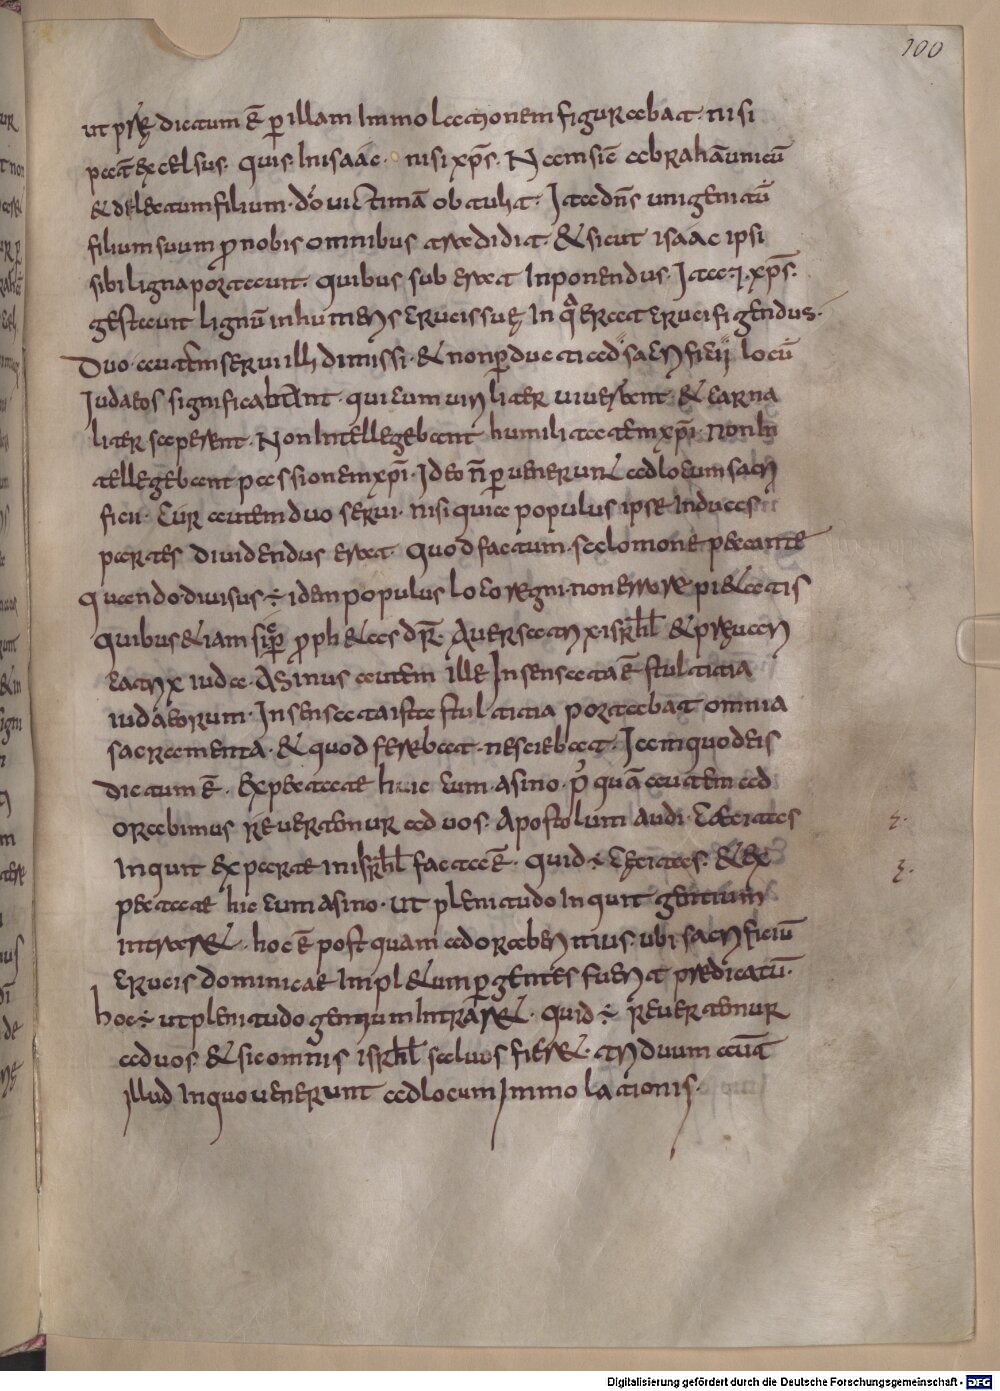 100
ut prę dictum ē ꝑ illam Immolationem figurabat· nisi
pat̄ excelsus· quis· Inisaac· nisi xp̄s· Nam sic̄ abrahā unicū
& dilectum filium· dō uictimā obtulit· Ita & dn̄s unigenitū
filium suum ꝓ nobis omnibus tradidit· & sicut isaac ipsi
sibi ligna portauit· quibus sub erat Inponendus· Ita & xp̄s·
gestauit lignū in humeris crucis suę In qua erat crucifigendus·
Duo· autem serui illi dimissi· & non ꝑducti ad sacrificii locū
Iudaeos significabant· qui cum uiriliter uiuebent· & carna
liter saperent· Non Intellegebant humilitatem xp̄i· non In
tellegebant passionem xp̄i· Ideo n̄ ꝑuenerunt ad locum sacri
ficii· Cur autem duo serui· nisi quia populus ipse Induas
partes diuidendus erat quod factum· salomone peccante
quando diuisus ÷ idem populus loco regni· non errore pi&atis
quibus &iam sup̄ ꝓph&as dr̄· Auersatrix isrl̄ & preuari
catrix iudae· Asinus autem ille Insensata ē stultitia
iudaeorum· Insensata iste stultitia portabat omnia
sacramenta· & quod ferebat· nesciebat· Iam quod eis
dictum ē· Expectate hic cum· asino· p̄ quā autem ad
orabimus reuertemur ad uos· Apostolum audi· Caecitas
Inquit exparte inisrl̄ facta ē· quid ÷ cęcitas· & ex
pectate hic cum asino· ut plenitudo Inquit gentium
intrar&· hoc ē postquam adoraberitius· ubi sacrificiū
crucis dominicae Impl&um ꝑ gentes fuerit predicatū·
hoc ÷ ut plenitudo gentium Intrar&· quid ÷ reuertemur
ad uos & sic omnis isrl̄ saluus fier&· triduum autē
illud Inquo uenerunt ad locum Immolationis·
Digitalisierung gefördert durch die Deutsche Forschungsgemeinschaft - DFG